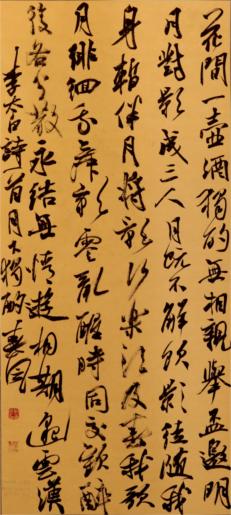 花間一壺酒獨酌無相親舉盃邀明
月對影成三人月既不解飲影徒隨我
身暫伴月將影行樂須及春我歌
月徘徊我舞影零亂醒時同交歡醉
後各分散永結無情遊相期邈雲漢
李太白詩一首月下獨酌